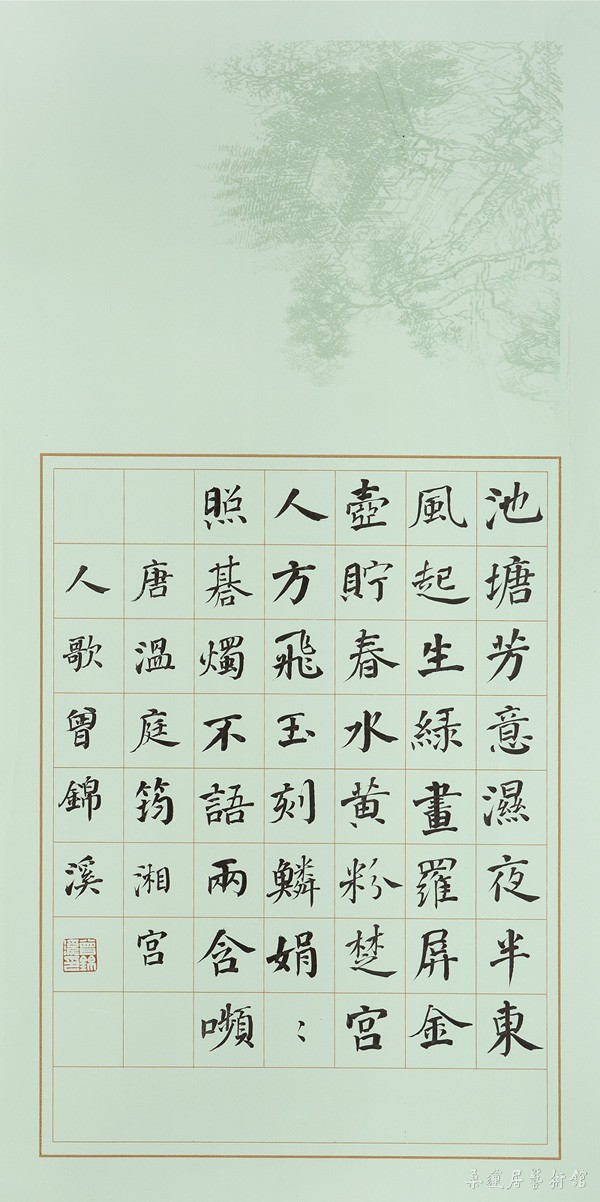 池塘芳意濕夜半東
風起生綠畫羅屏金
壺貯春水黃粉楚宮
人方飛玉刻鱗娟〻
照碁燭不語兩含嚬
唐溫庭筠湘宮
人歌曾錦溪